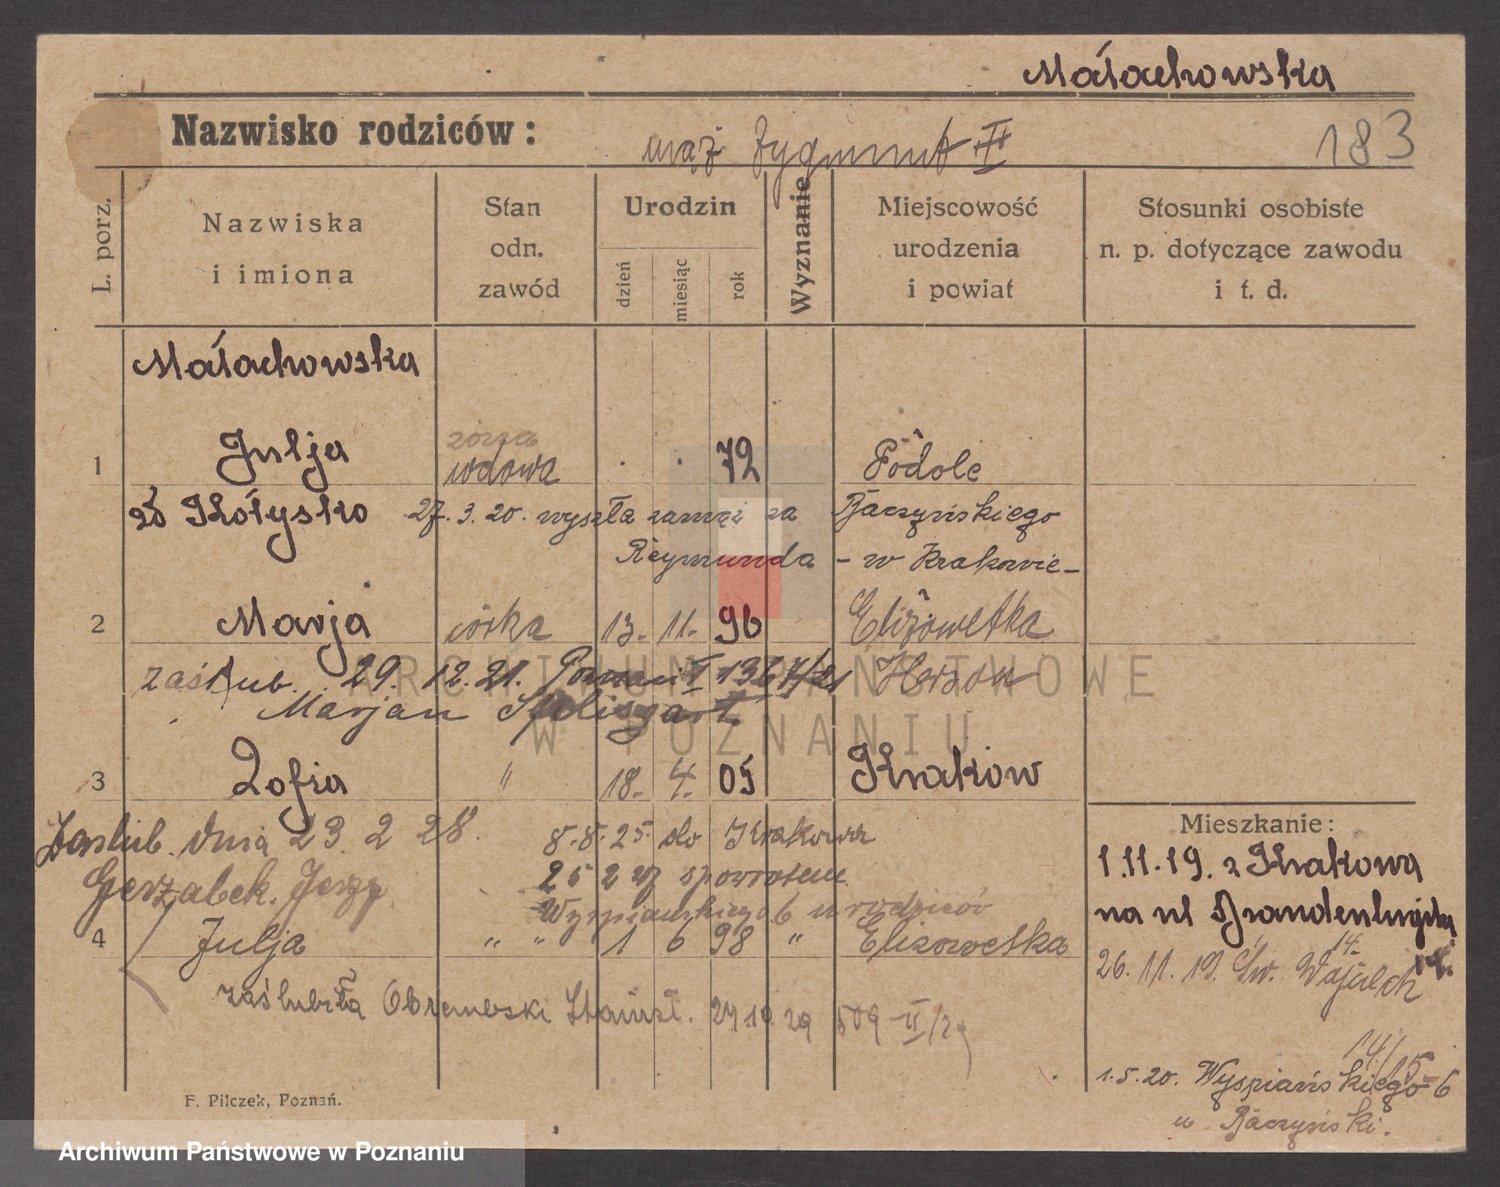 Małachowska
Nazwisko rodziców:
mąż Zygmunt II
183
L. porz.
Nazwiska
i imiona
Stan
odn.
zawód
Urodzin
dzień
miesiąc
rok
Wyznanie
Miejscowość
urodzenia
i powiat
Stosunki osobiste
n. p. dotyczące zawodu
i t. d.
Małachowska
1 Julja wdowa 72 Podole
27. 3. 20. wyszła zamąż za Raczyńskiego
Reymunda - w Krakowie -
2 Marja córka 13. 11. 96 Elizowetka
zaślub. 29. 12. 21. Poznań 1367/21 Herson
Marjan
3 Zofia " 18. 4. 05 Kraków
Zaślub. dnia 23. 2 28. 8.8.25. do Krakowa
25 2 spowrotem
Gerzabek. Jerzy
Wyspiańskiego 6 u rodziców
4 Julja " " 1 6 98 " Elizowetka
zaślubiła Obrembski Stanisł. 24 10 29 509 II/29
Mieszkanie:
1.11.19. z Krakowa
na ul Brandenburską
14.
26. 11. 19. Św. Wojciech
14/15
1.5.20. Wyspiańskiego 6
u Raczyński.
F. Pilczek, Poznań.
ARCHIWUM PAŃSTWOWE
W POZNANIU
Archiwum Państwowe w Poznaniu